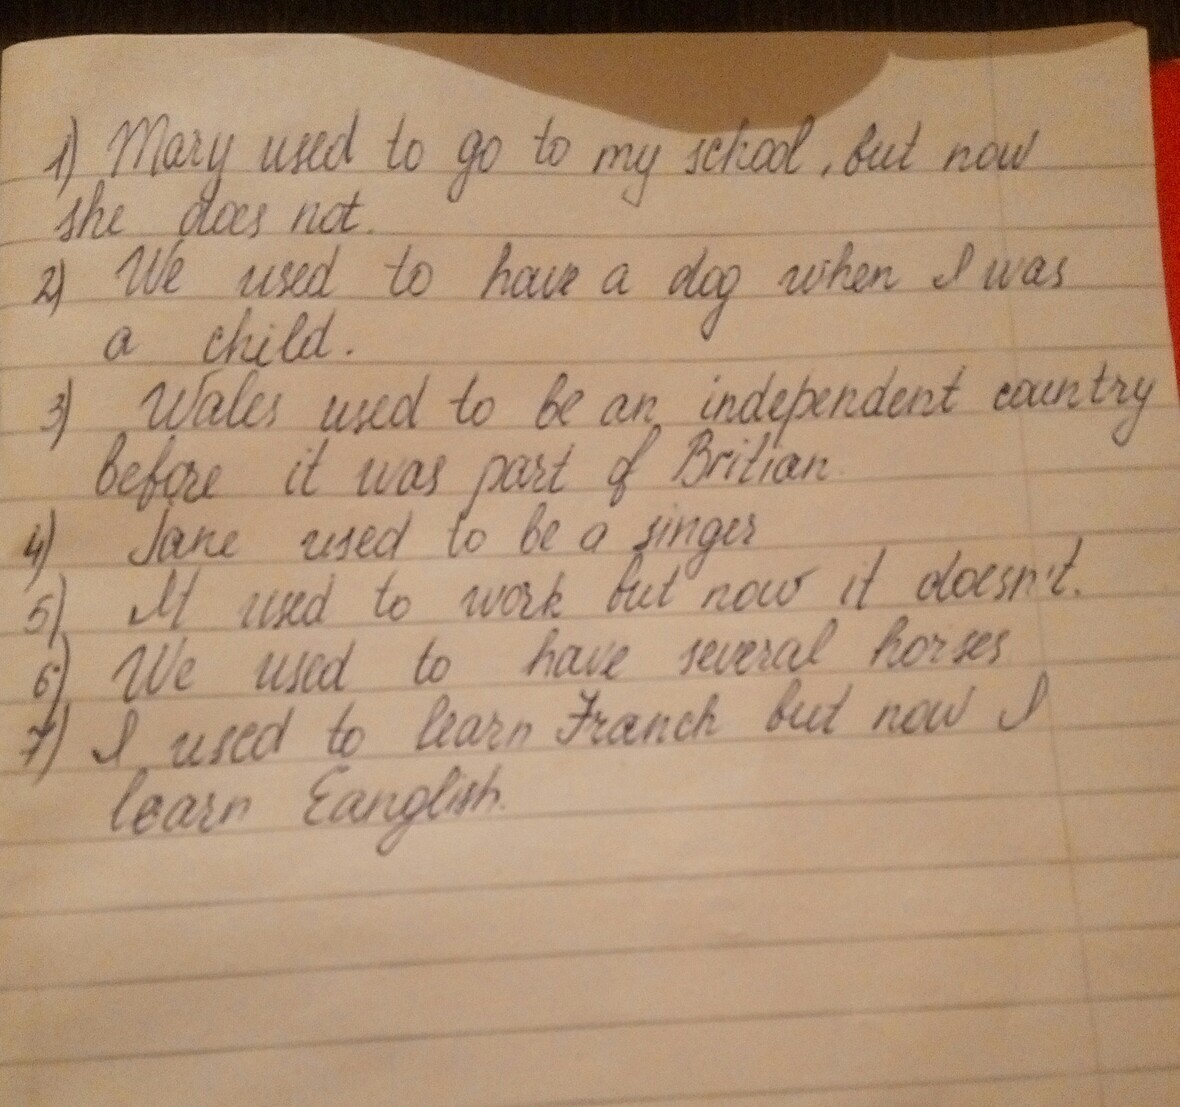 1) Mary used to go to my school, but now
she does not.
2) We used to have a dog when I was
a child.
3) Wales used to be an independent country
before it was part of Britian.
4) Jane used to be a singer
5) It used to work but now it doesn't.
6) We used to have several horses
7) I used to learn Franch but now I
learn Eanglish.